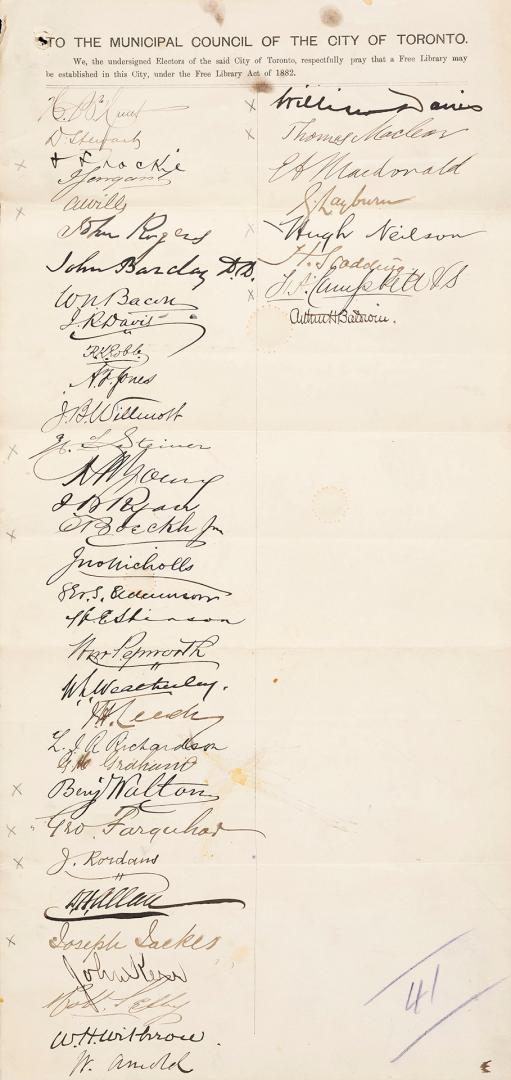 TO THE MUNICIPAL COUNCIL OF THE CITY OF TORONTO.
We, the undersigned Electors of the said City of Toronto, respectfully pray that a Free Library may
be established in this City, under the Free Library Act of 1882.
D. Stewart
J Sargant
A Wills
John Rogers
John Barclay D.D.
W N Bacon
J. R. Davis
R. K. Robb
A. F. Jones
J. B. Willmott
Steiner
Young
J B Ryan
E Boeckh Jn
Jno Nicholls
Geo. S. Adamson
Stinson
Wm Pepworth
Wh Weatherley.
Leedy
L. J. A Richardson
Graham
Benj Walton
Geo Farquhar
J. Rordans
A. H. Allan
Joseph Jackes
John Kerr
W. H. Withrow.
W. Arnold
William Davies
Thomas Maclear
E A Macdonald
J. Rayburn
Hugh Neilson
H. Scadding
Campbell VS
Arthur H Baldwin.
41